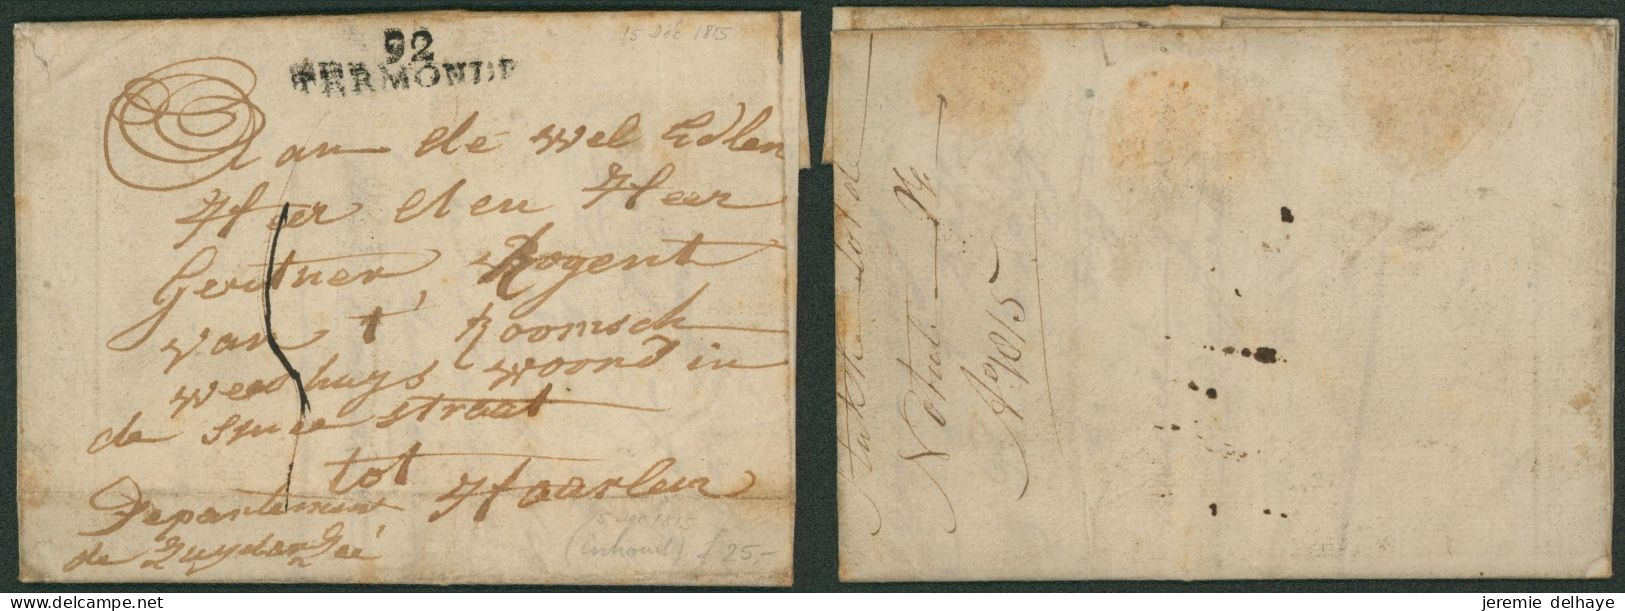 15 Déc 1815
92
TERMONDE
Aan de wel Edlen
Heer den Heer
Gerdtner Regent
van t' Roomsch
weeshuys woond in
de straat
tot Haarlem
Departement
de Zuyder Zeé
15 Dec 1815
(inhoud) f 25,-
Notul
Aº 1815
delcampe.net
jeremie delhaye